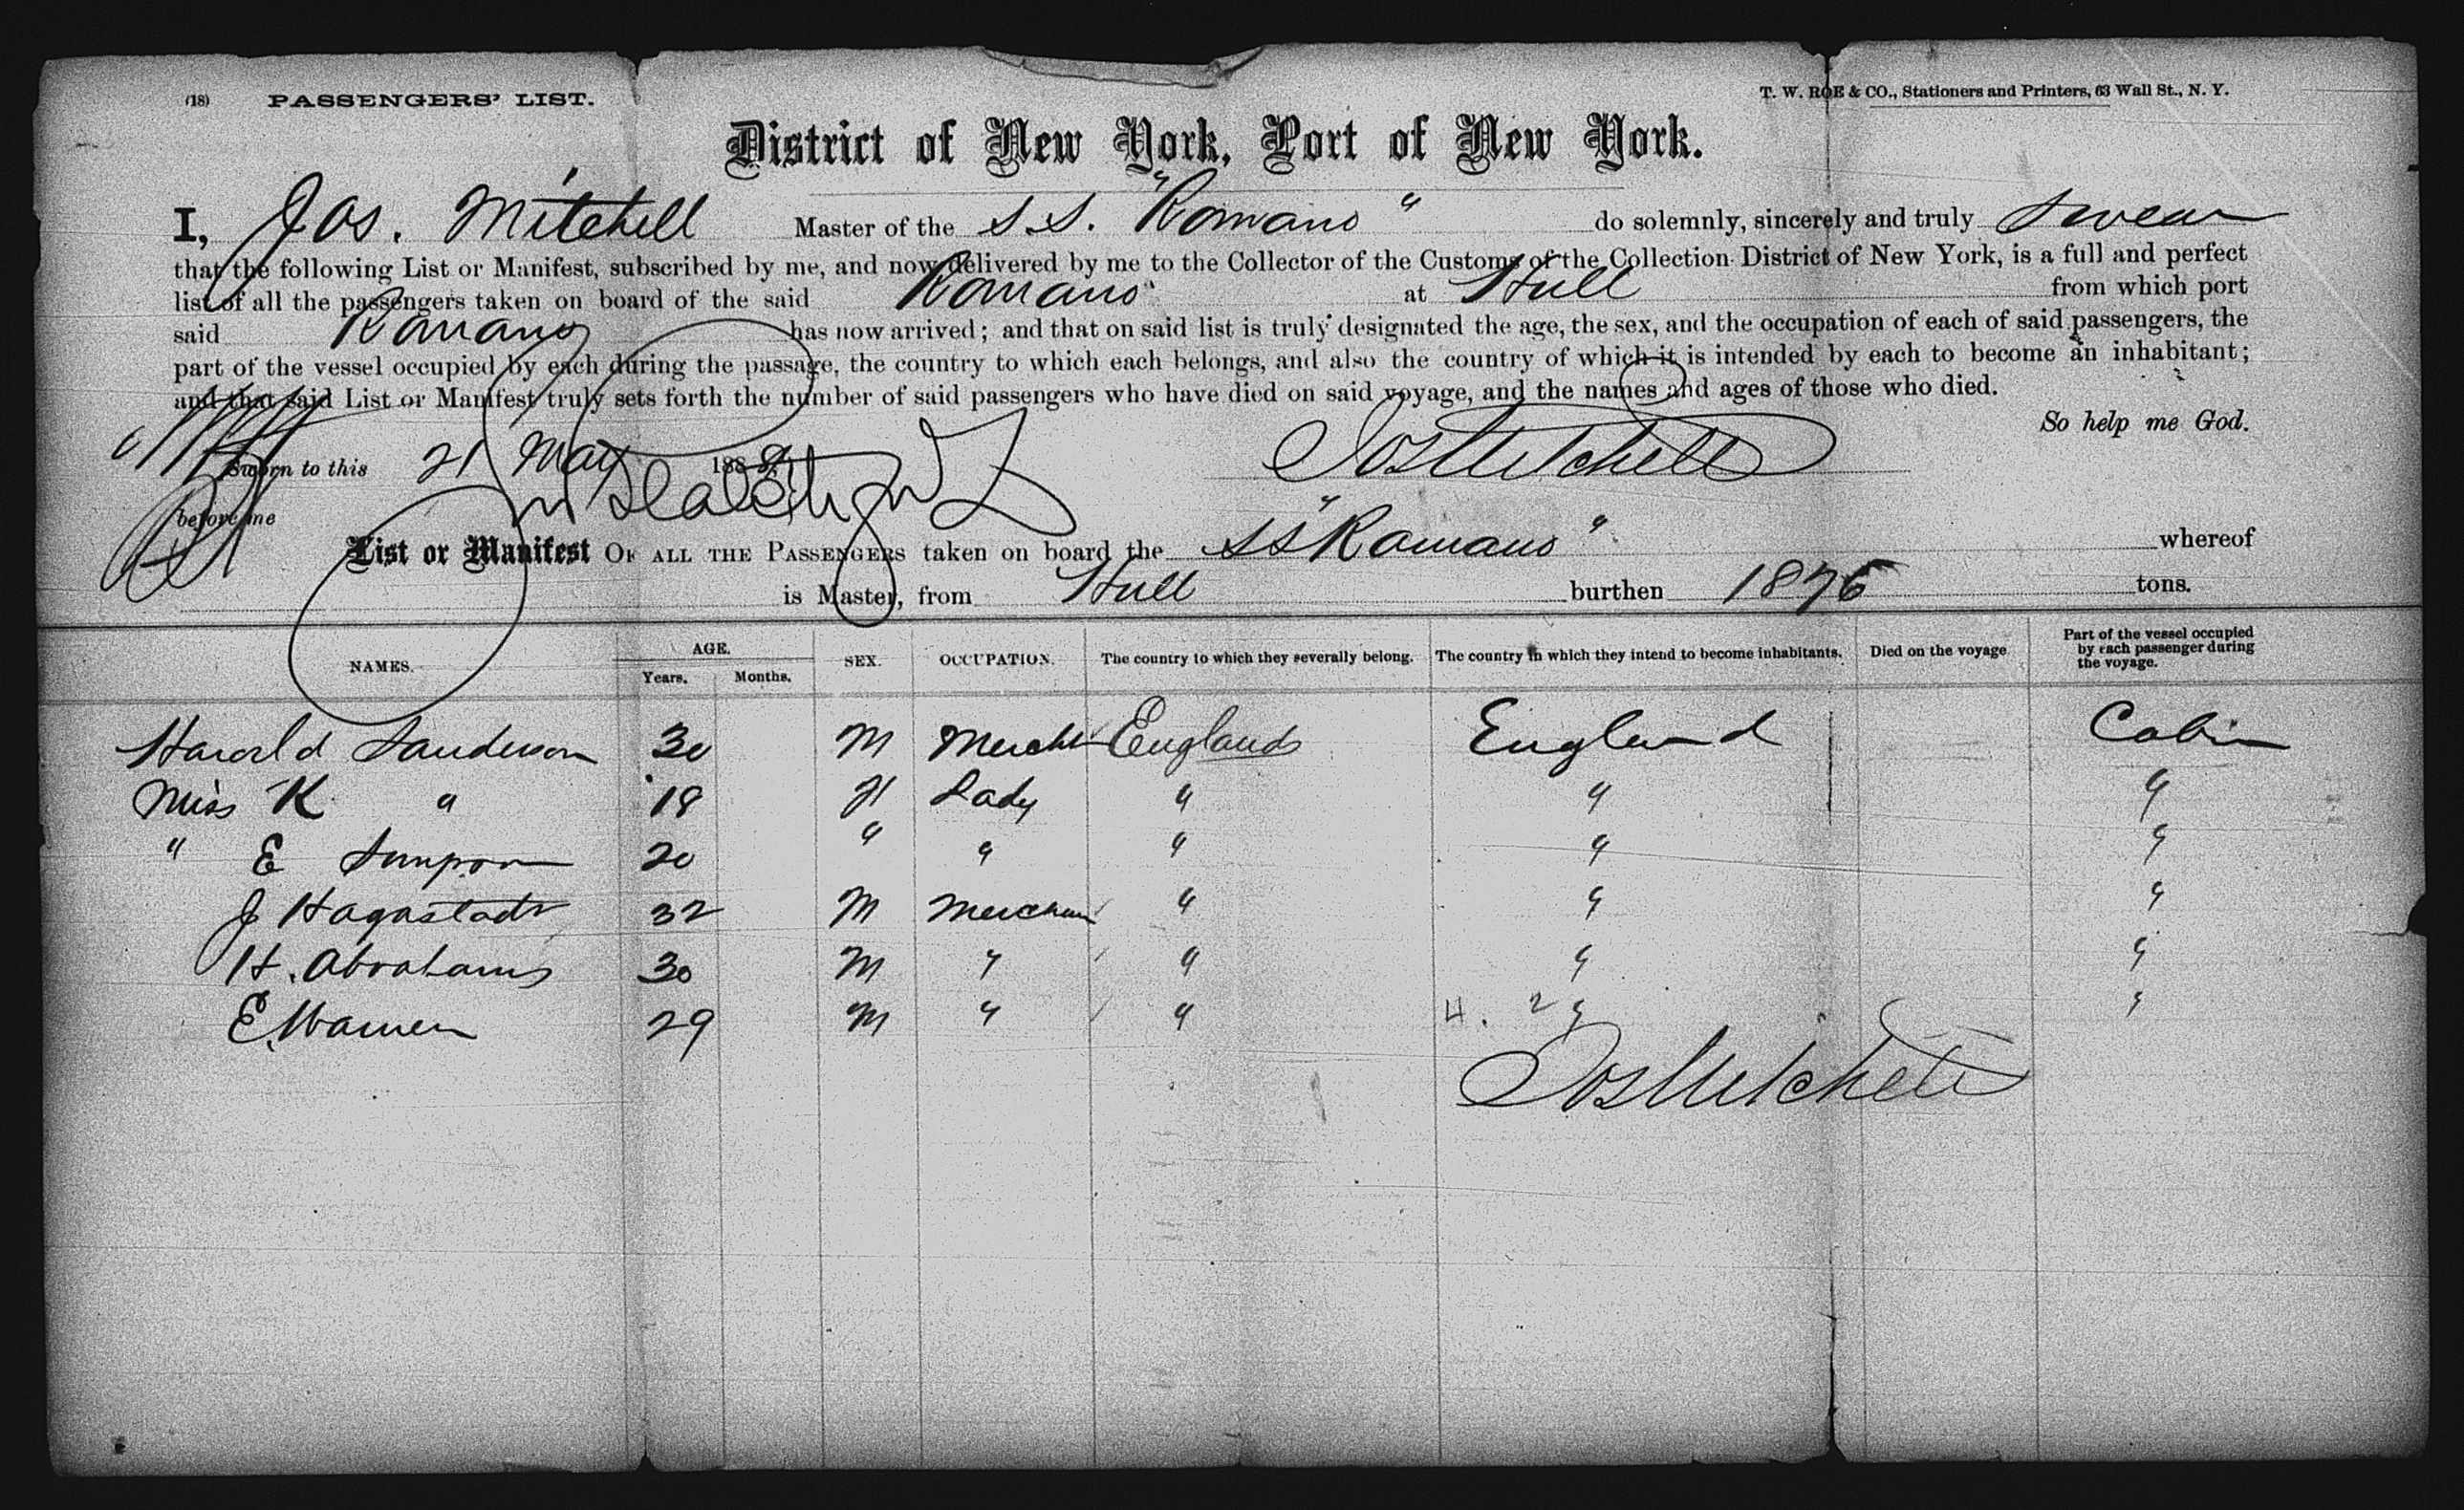 (18) PASSENGERS' LIST. T. W. ROE & CO., Stationers and Printers, 63 Wall St., N. Y.
District of New York, Port of New York.
I, Jos. Mitchell Master of the S.S. "Romano" do solemnly, sincerely and truly swear
that the following List or Manifest, subscribed by me, and now delivered by me to the Collector of the Customs of the Collection District of New York, is a full and perfect
list of all the passengers taken on board of the said Romano at Hull from which port
said Romano has now arrived; and that on said list is truly designated the age, the sex, and the occupation of each of said passengers, the
part of the vessel occupied by each during the passage, the country to which each belongs, and also the country of which it is intended by each to become an inhabitant;
and that said List or Manifest truly sets forth the number of said passengers who have died on said voyage, and the names and ages of those who died.
So help me God.
Sworn to this 21 May 188 Jos Mitchell
before me
List or Manifest OF ALL THE PASSENGERS taken on board the SS "Romano" whereof
is Master, from Hull burthen 1876 tons.
NAMES. AGE. Years. Months. SEX. OCCUPATION. The country to which they severally belong. The country in which they intend to become inhabitants. Died on the voyage Part of the vessel occupied by each passenger during the voyage.
Harold Sanderson 30 M Mercht England England Cabin
Miss K " 18 F Lady " " "
" E Simpson 20 " " " " "
J Hagastadt 32 M Merchan " " "
H. Abrahams 30 M " " " "
E. Warren 29 M " " " "
Jos Mitchell